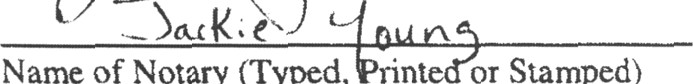 Jackie Young
Name of Notary (Typed, Printed or Stamped)